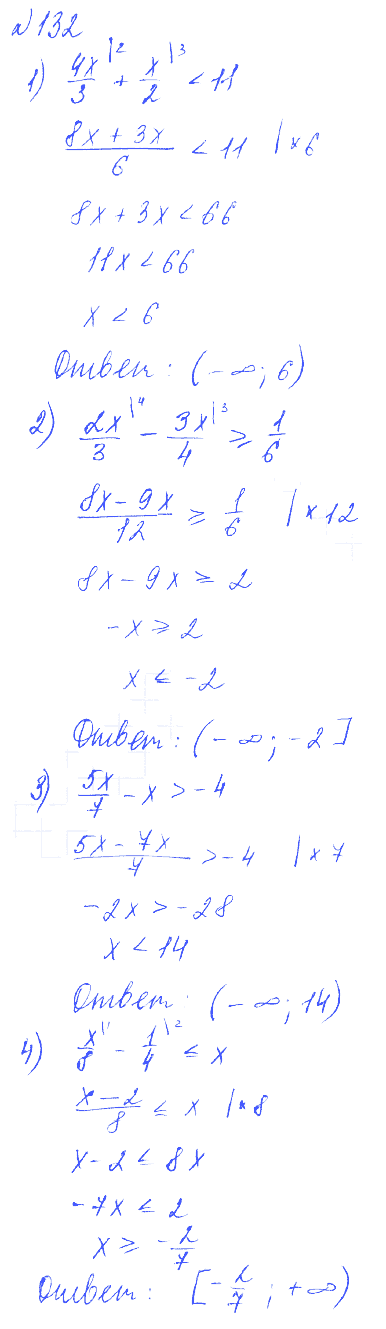 №132
1) 4x/3 |² + x/2 |³ < 11
8x + 3x / 6 < 11 | × 6
8x + 3x < 66
11x < 66
x < 6
Ответ: (-∞; 6)
2) 2x/3 |⁴ - 3x/4 |³ ≥ 1/6
8x - 9x / 12 ≥ 1/6 | × 12
8x - 9x ≥ 2
-x ≥ 2
x ≤ -2
Ответ: (-∞; -2]
3) 5x/7 - x > -4
5x - 7x / 7 > -4 | × 7
-2x > -28
x < 14
Ответ: (-∞; 14)
4) x/8 |¹ - 1/4 |² ≤ x
x - 2 / 8 ≤ x | × 8
x - 2 ≤ 8x
-7x ≤ 2
x ≥ -2/7
Ответ: [-2/7; +∞)